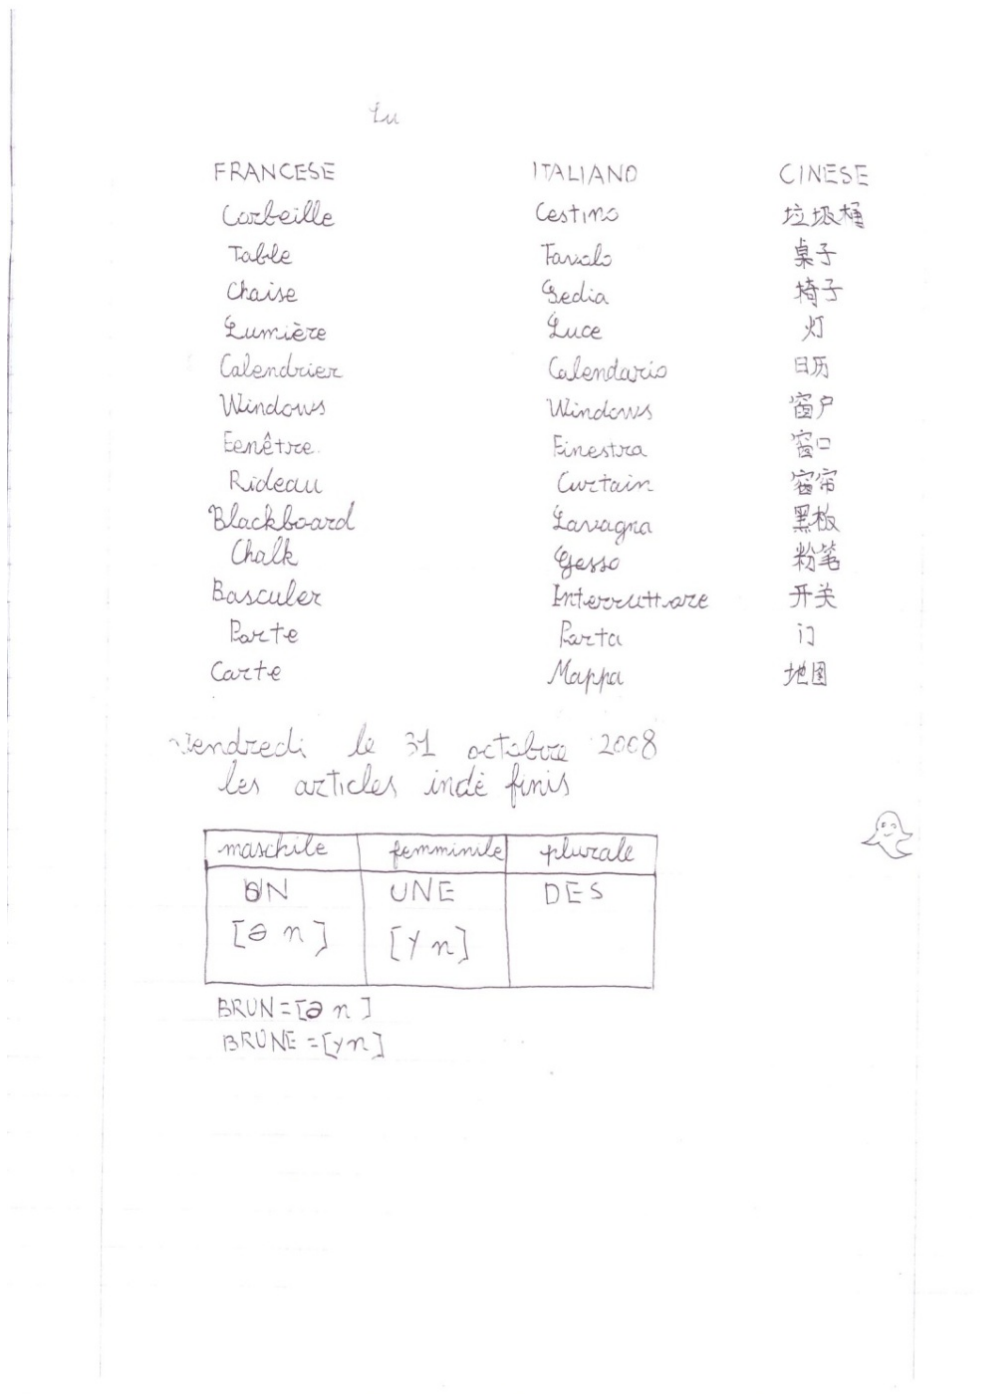 Lu
FRANCESE ITALIANO CINESE
Corbeille Cestino 垃圾桶
Table Tavolo 桌子
Chaise Sedia 椅子
Lumière Luce 灯
Calendrier Calendario 日历
Windows Windows 窗户
Fenêtre Finestra 窗口
Rideau Curtain 窗帘
Blackboard Lavagna 黑板
Chalk Gesso 粉笔
Basculer Interruttore 开关
Porte Porta 门
Carte Mappa 地图
Vendredi le 31 octobre 2008
les articles indé finis
maschile femminile plurale
UN UNE DES
[ə n] [y n]
BRUN = [ə n]
BRUNE = [yn]